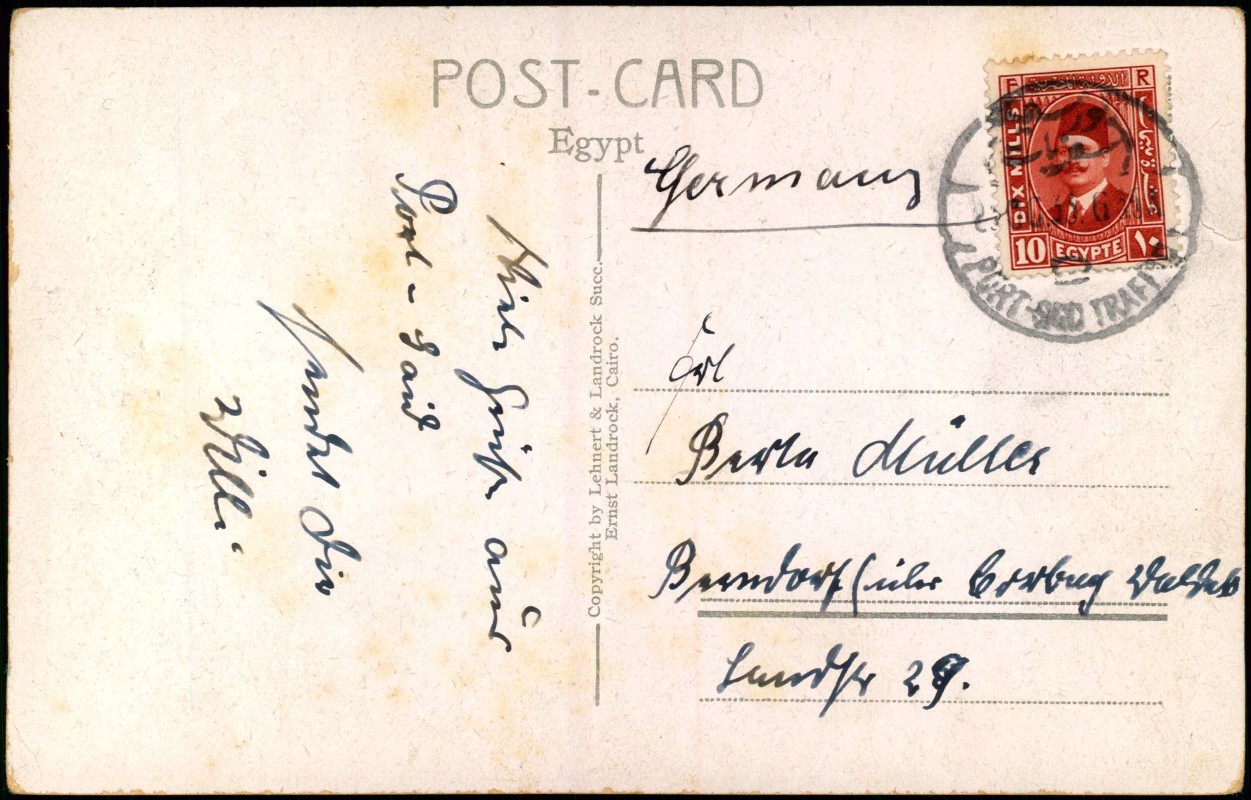 POST-CARD
Egypt
Germany
F R
الدولة المصرية
DIX MILLS
10 EGYPTE ١٠
PORT-SAID TRAFFIC
Viele Grüße aus
Port-Said
sendet Dir
Willi.
Copyright by Lehnert & Landrock Succ.
Ernst Landrock, Cairo.
Frl
Berta Müller
Berndorf (über Corbach Waldek
Landstr 29.